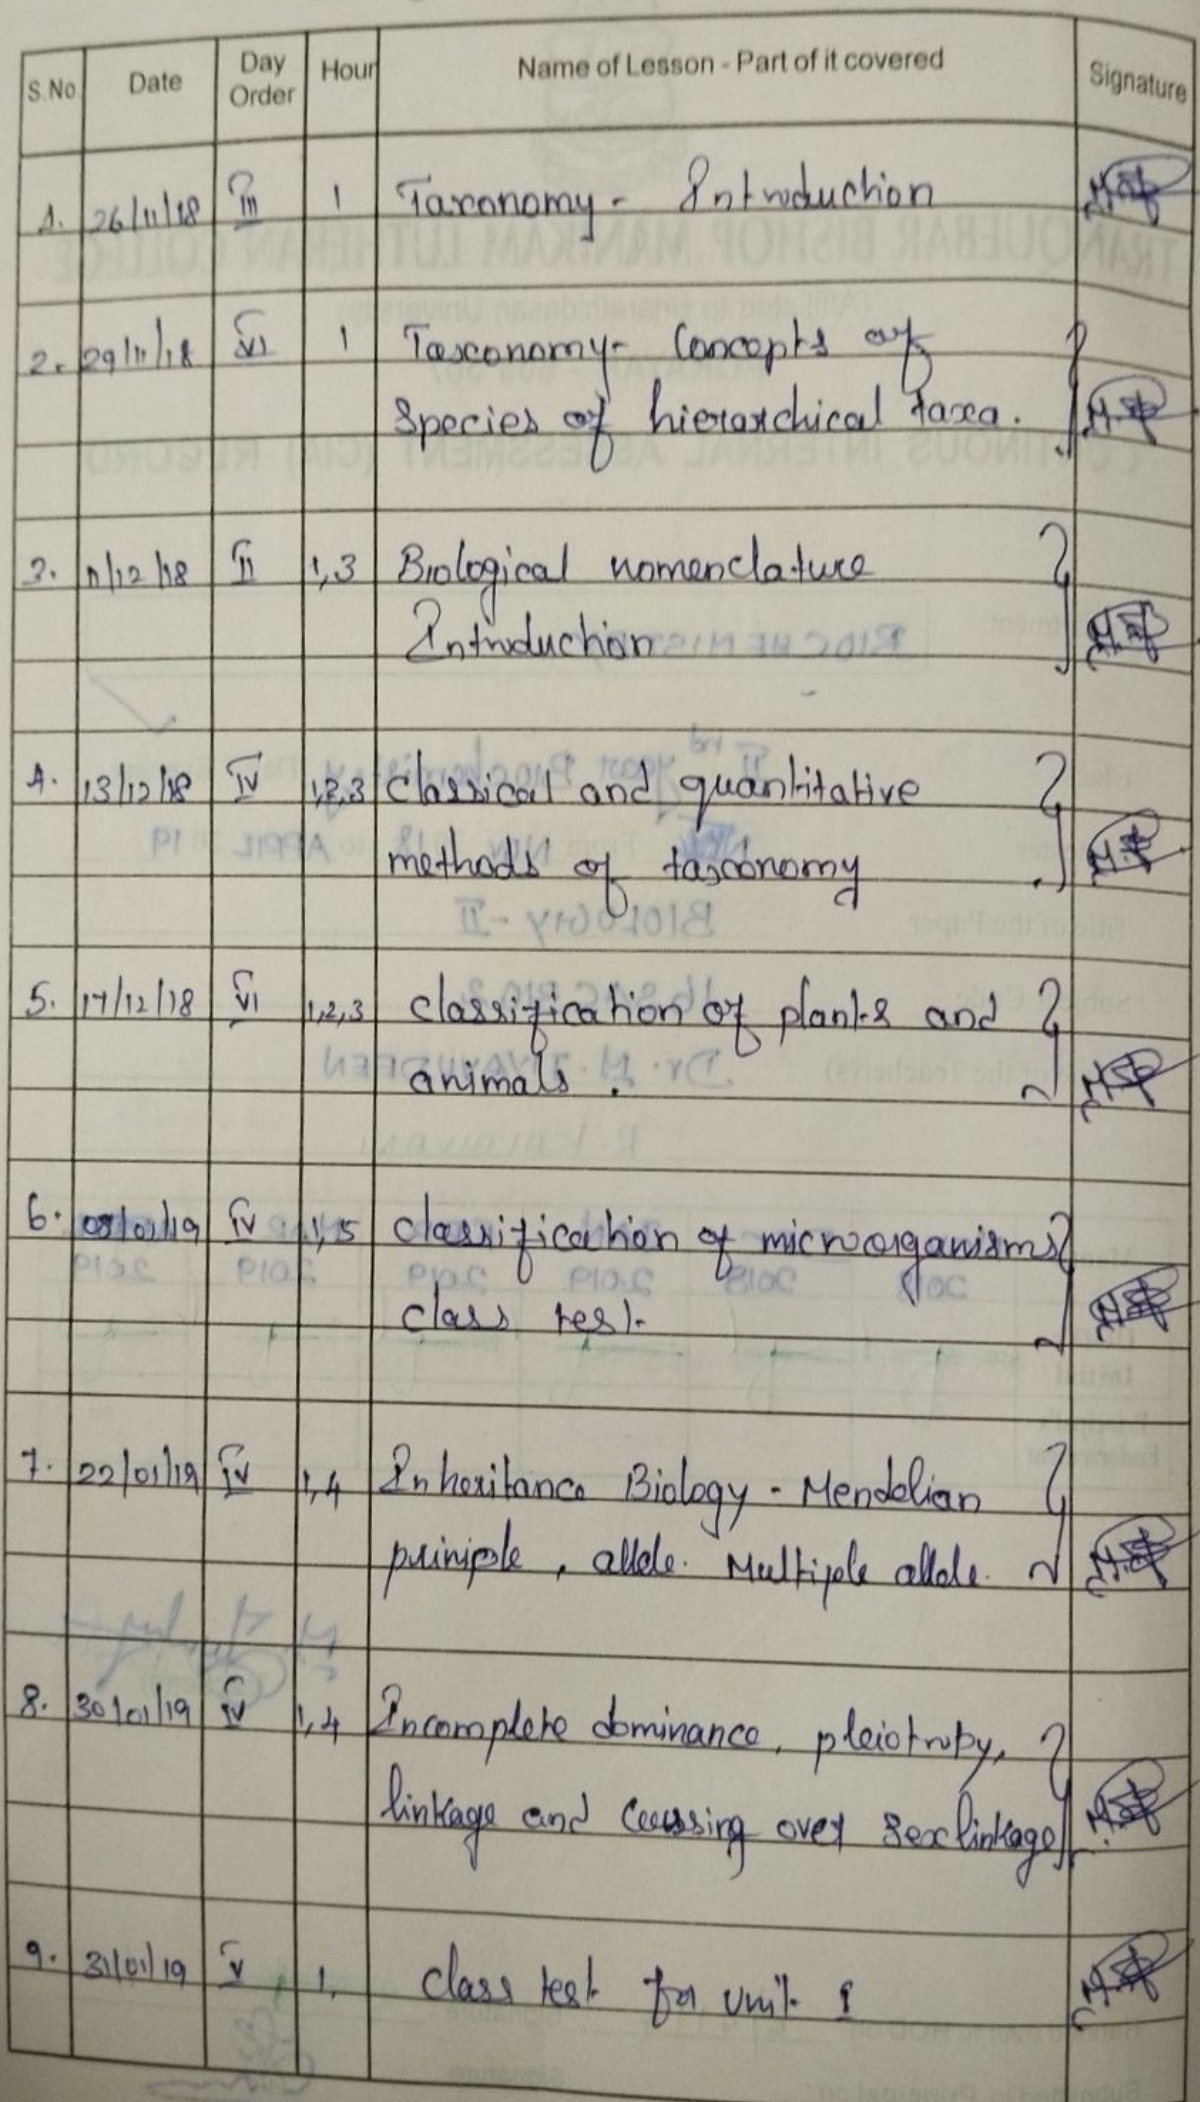 S.No. Date Day Order Hour Name of Lesson - Part of it covered Signature
1. 26/11/18 III 1 Taxonomy - Introduction
2. 29/11/18 VI 1 Taxonomy - Concepts of
Species of hierarchical taxa.
3. 11/12/18 II 1,3 Biological nomenclature
Introduction
4. 13/12/18 IV 1,2,3 Classical and quantitative
methods of taxonomy
5. 17/12/18 VI 1,2,3 classification of plants and
animals.
6. /01/19 IV 1,5 classification of microorganisms
class test.
7. 22/01/19 IV 1,4 Inheritance Biology - Mendelian
priniple, allele. Multiple allele.
8. 30/01/19 IV 1,4 Incomplete dominance, pleiotropy,
linkage and crossing over sex linkage
9. 31/01/19 V 1, class test for unit - I